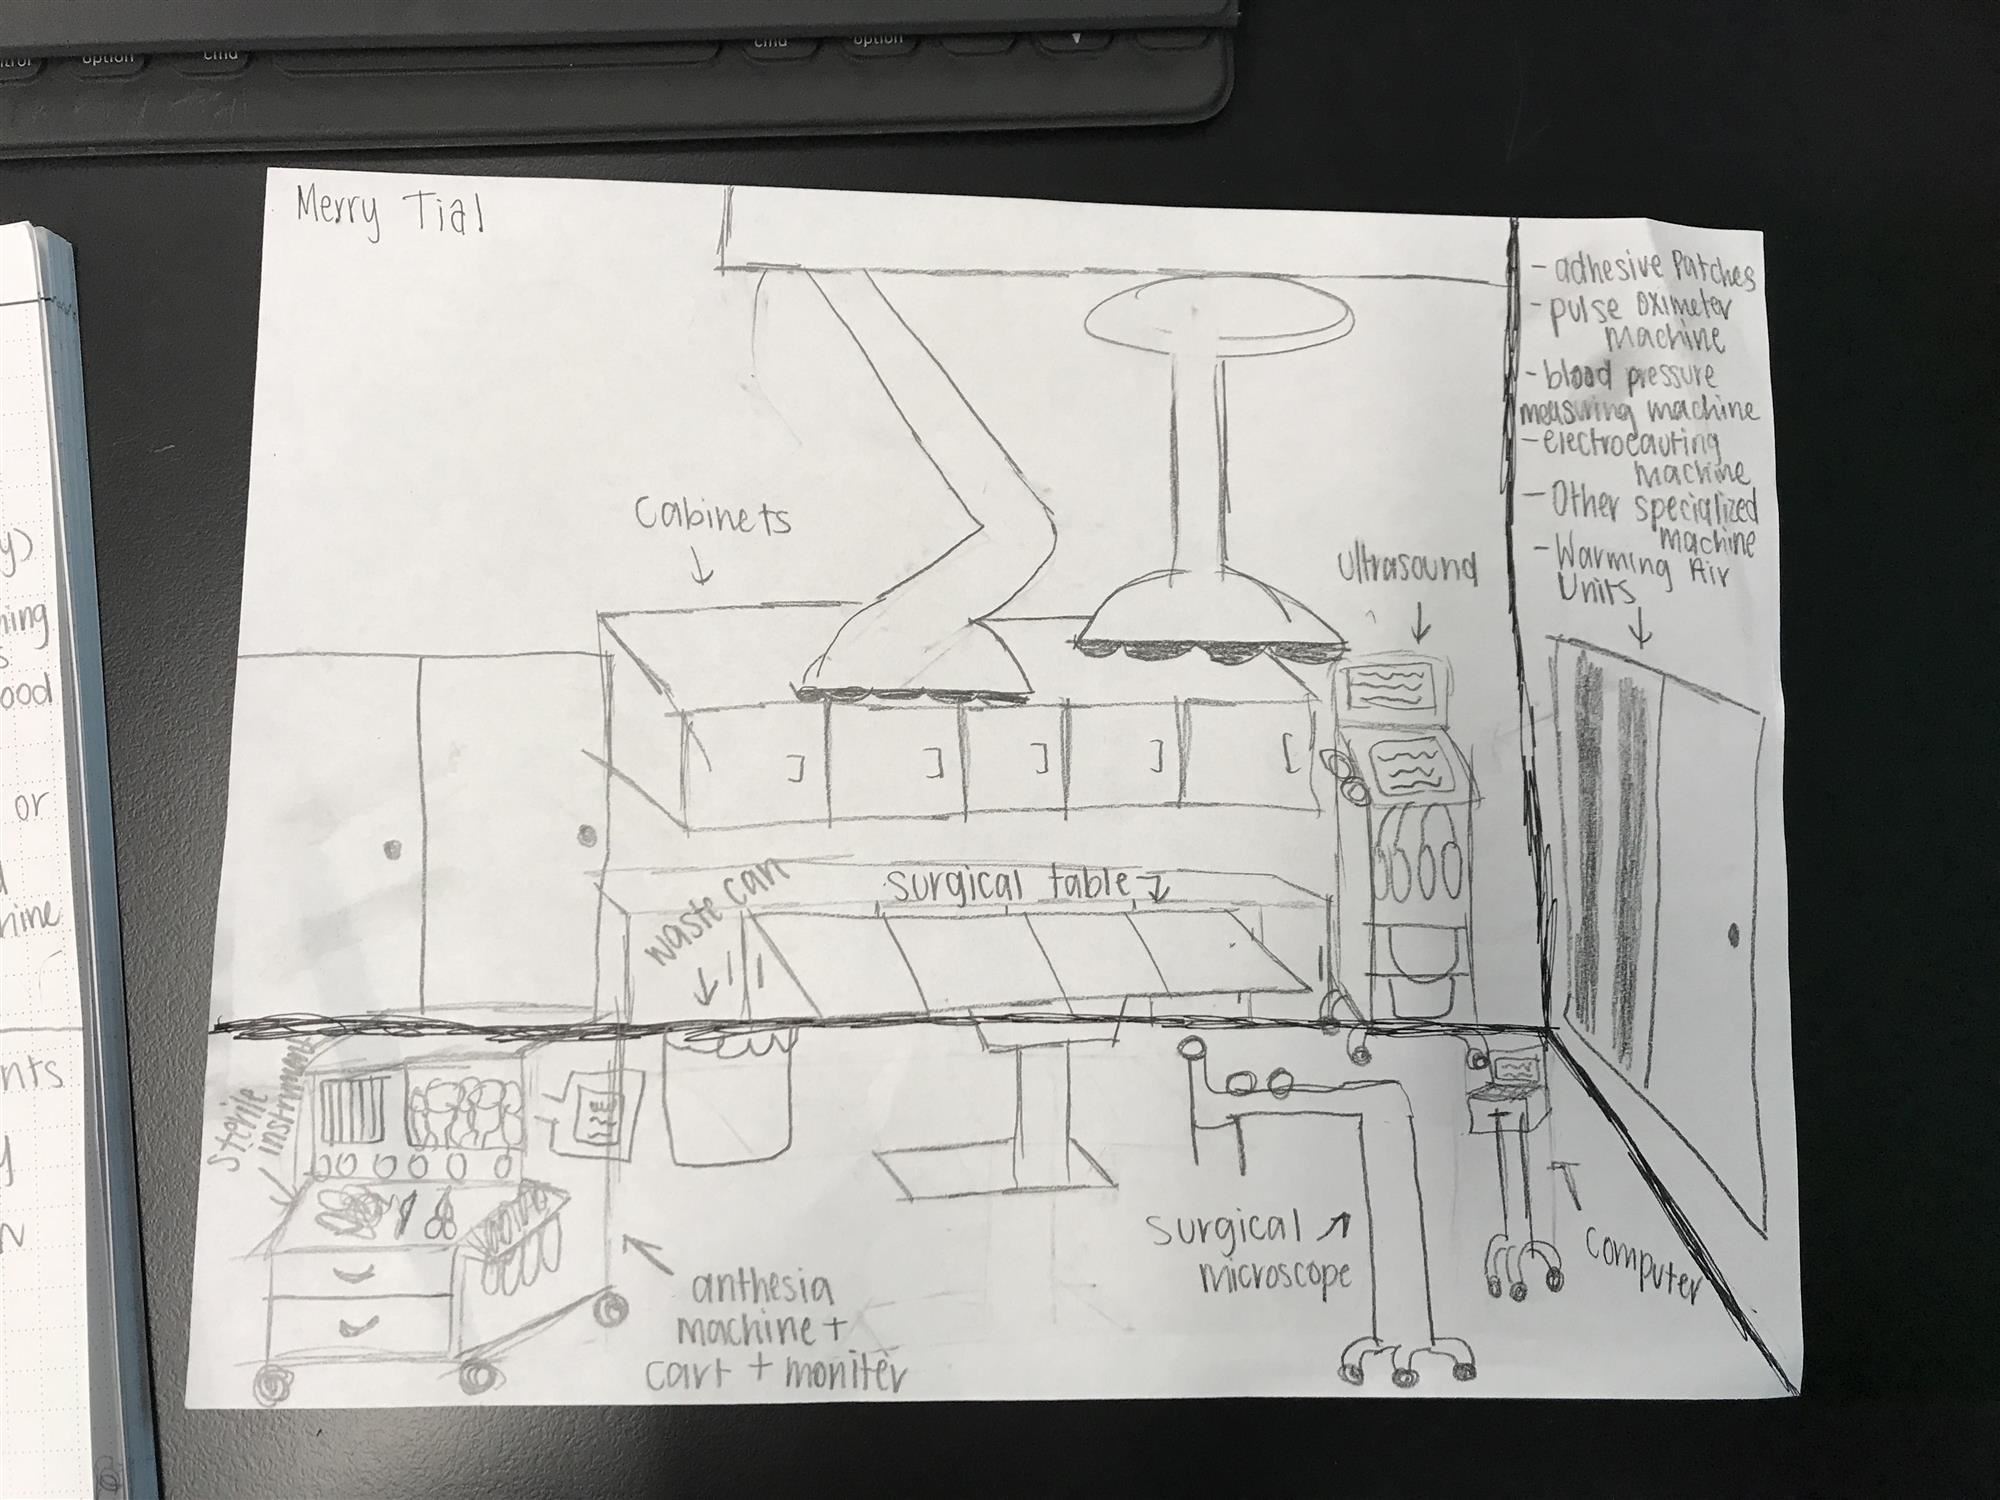 option
cmd
cmd
option
Merry Tial
- adhesive Patches
- pulse oximeter
machine
- blood pressure
measuring machine
- electrocauting
machine
- Other specialized
machine
- Warming Air
Units
Cabinets
ultrasound
surgical table
waste can
Sterile
instruments
surgical
microscope
computer
anthesia
machine +
cart + moniter
y)
ood
or
hine
nts
y